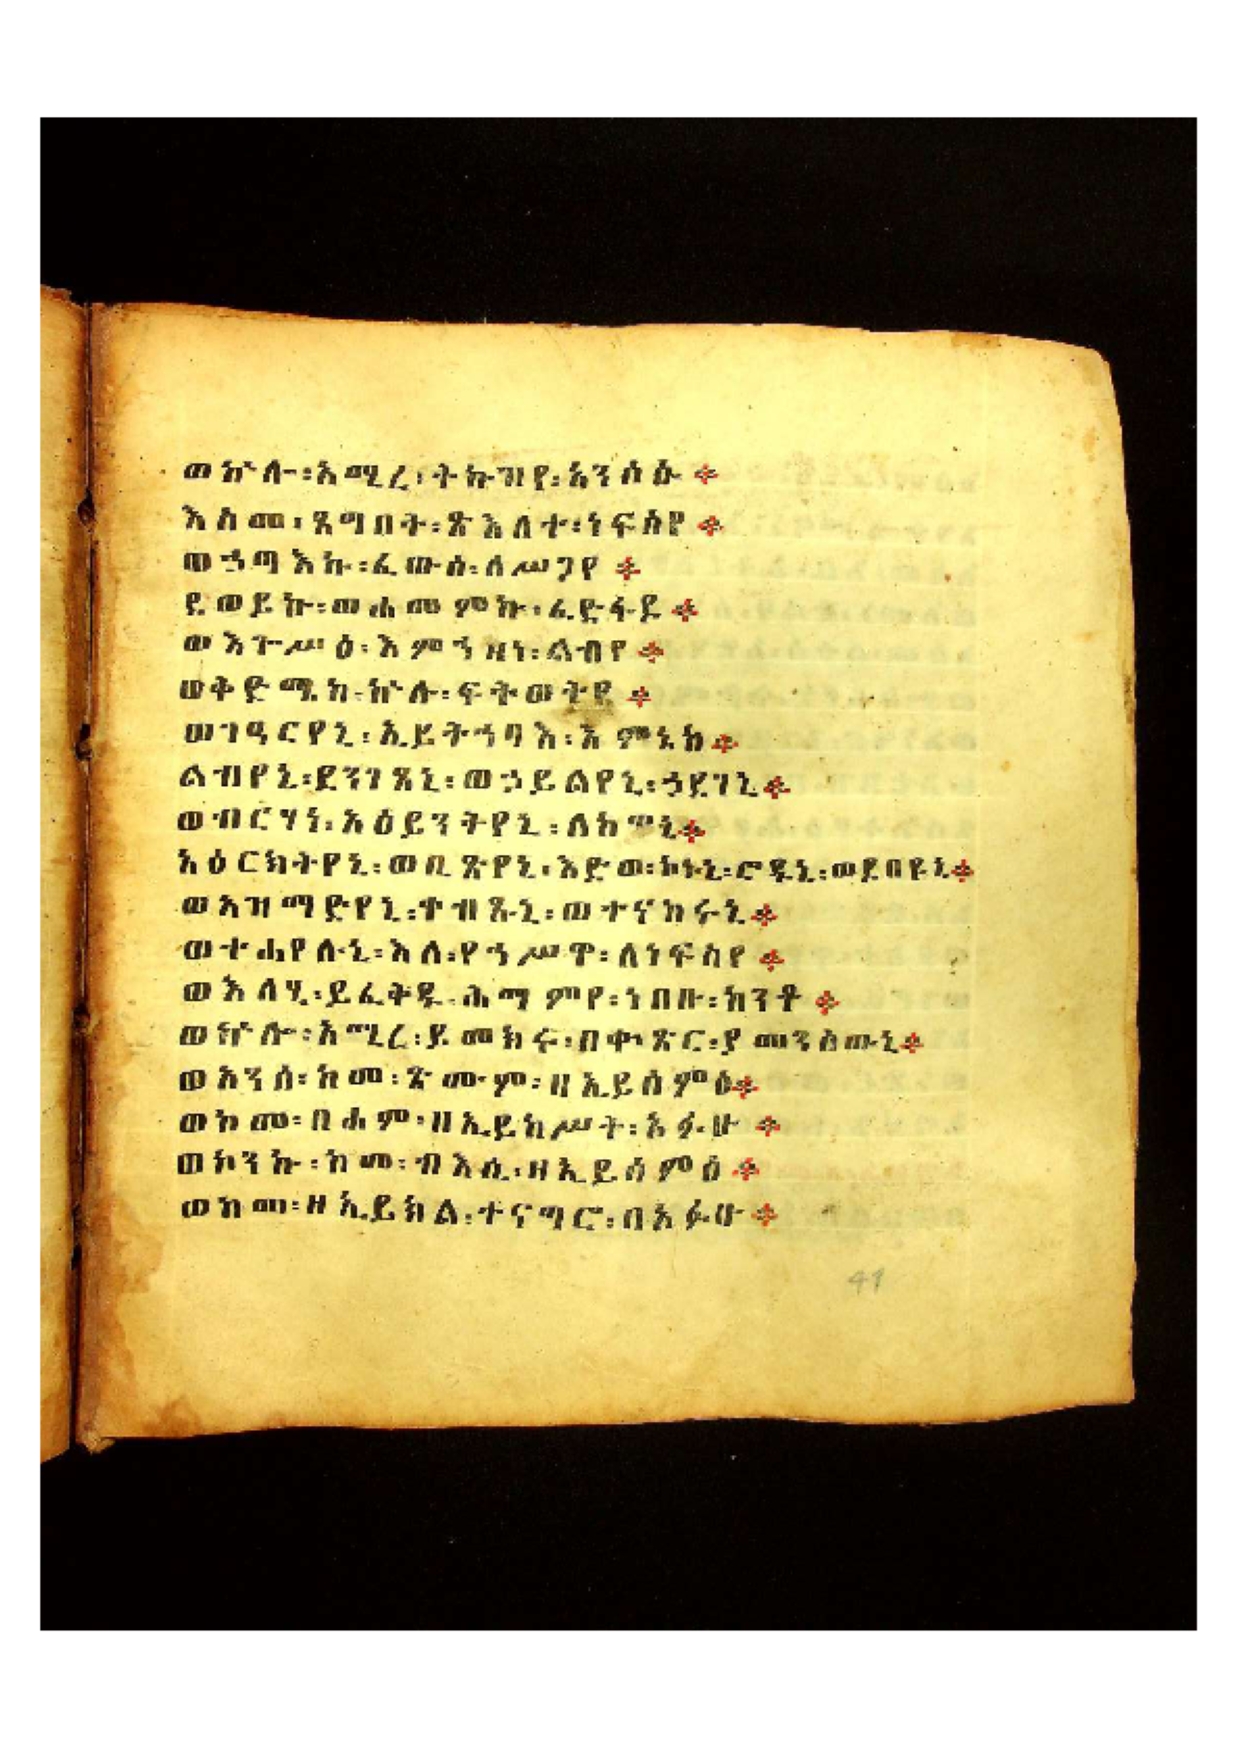 ወኵሉ፡አሚረ፡ትኩዝየ፡አንሶሱ፨
እስመ፡ጸግበት፡ጽእለተ፡ነፍስየ፨
ወኃጣእኩ፡ፈውሰ፡ለሥጋየ፨
ደወይኩ፡ወሐመምኩ፡ፈድፋደ፨
ወእጐሥዕ፡እምኀዘነ፡ልብየ፨
ወቅድሜከ፡ኵሉ፡ፍትወትየ፨
ወገዓርየኒ፡ኢይትኀባእ፡እምኔከ፨
ልብየኒ፡ደንገጸኒ፡ወኃይልየኒ፡ኃደገኒ፨
ወብርሃነ፡አዕይንትየኒ፡ለከዋኒ፨
አዕርክትየኒ፡ወቢጽየኒ፡እድወ፡ኮኑኒ፡ሮዱኒ፡ወደበዩኒ፨
ወአዝማድየኒ፡ተብጹኒ፡ወተናከሩኒ፨
ወተሐየሉኒ፡እለ፡የኀሥዋ፡ለነፍስየ፨
ወእለሂ፡ይፈቅዱ፡ሕማምየ፡ነበቡ፡ከንቶ፨
ወኵሎ፡አሚረ፡ይመክሩ፡በቍጽር፡ያመንስዉኒ፨
ወአንሰ፡ከመ፡ጽሙም፡ዘኢይሰምዕ፨
ወከመ፡በሐም፡ዘኢይከሥት፡አፉሁ፨
ወኮንኩ፡ከመ፡ብእሲ፡ዘኢይሰምዕ፨
ወከመ፡ዘኢይክል፡ተናግሮ፡በአፉሁ፨
41